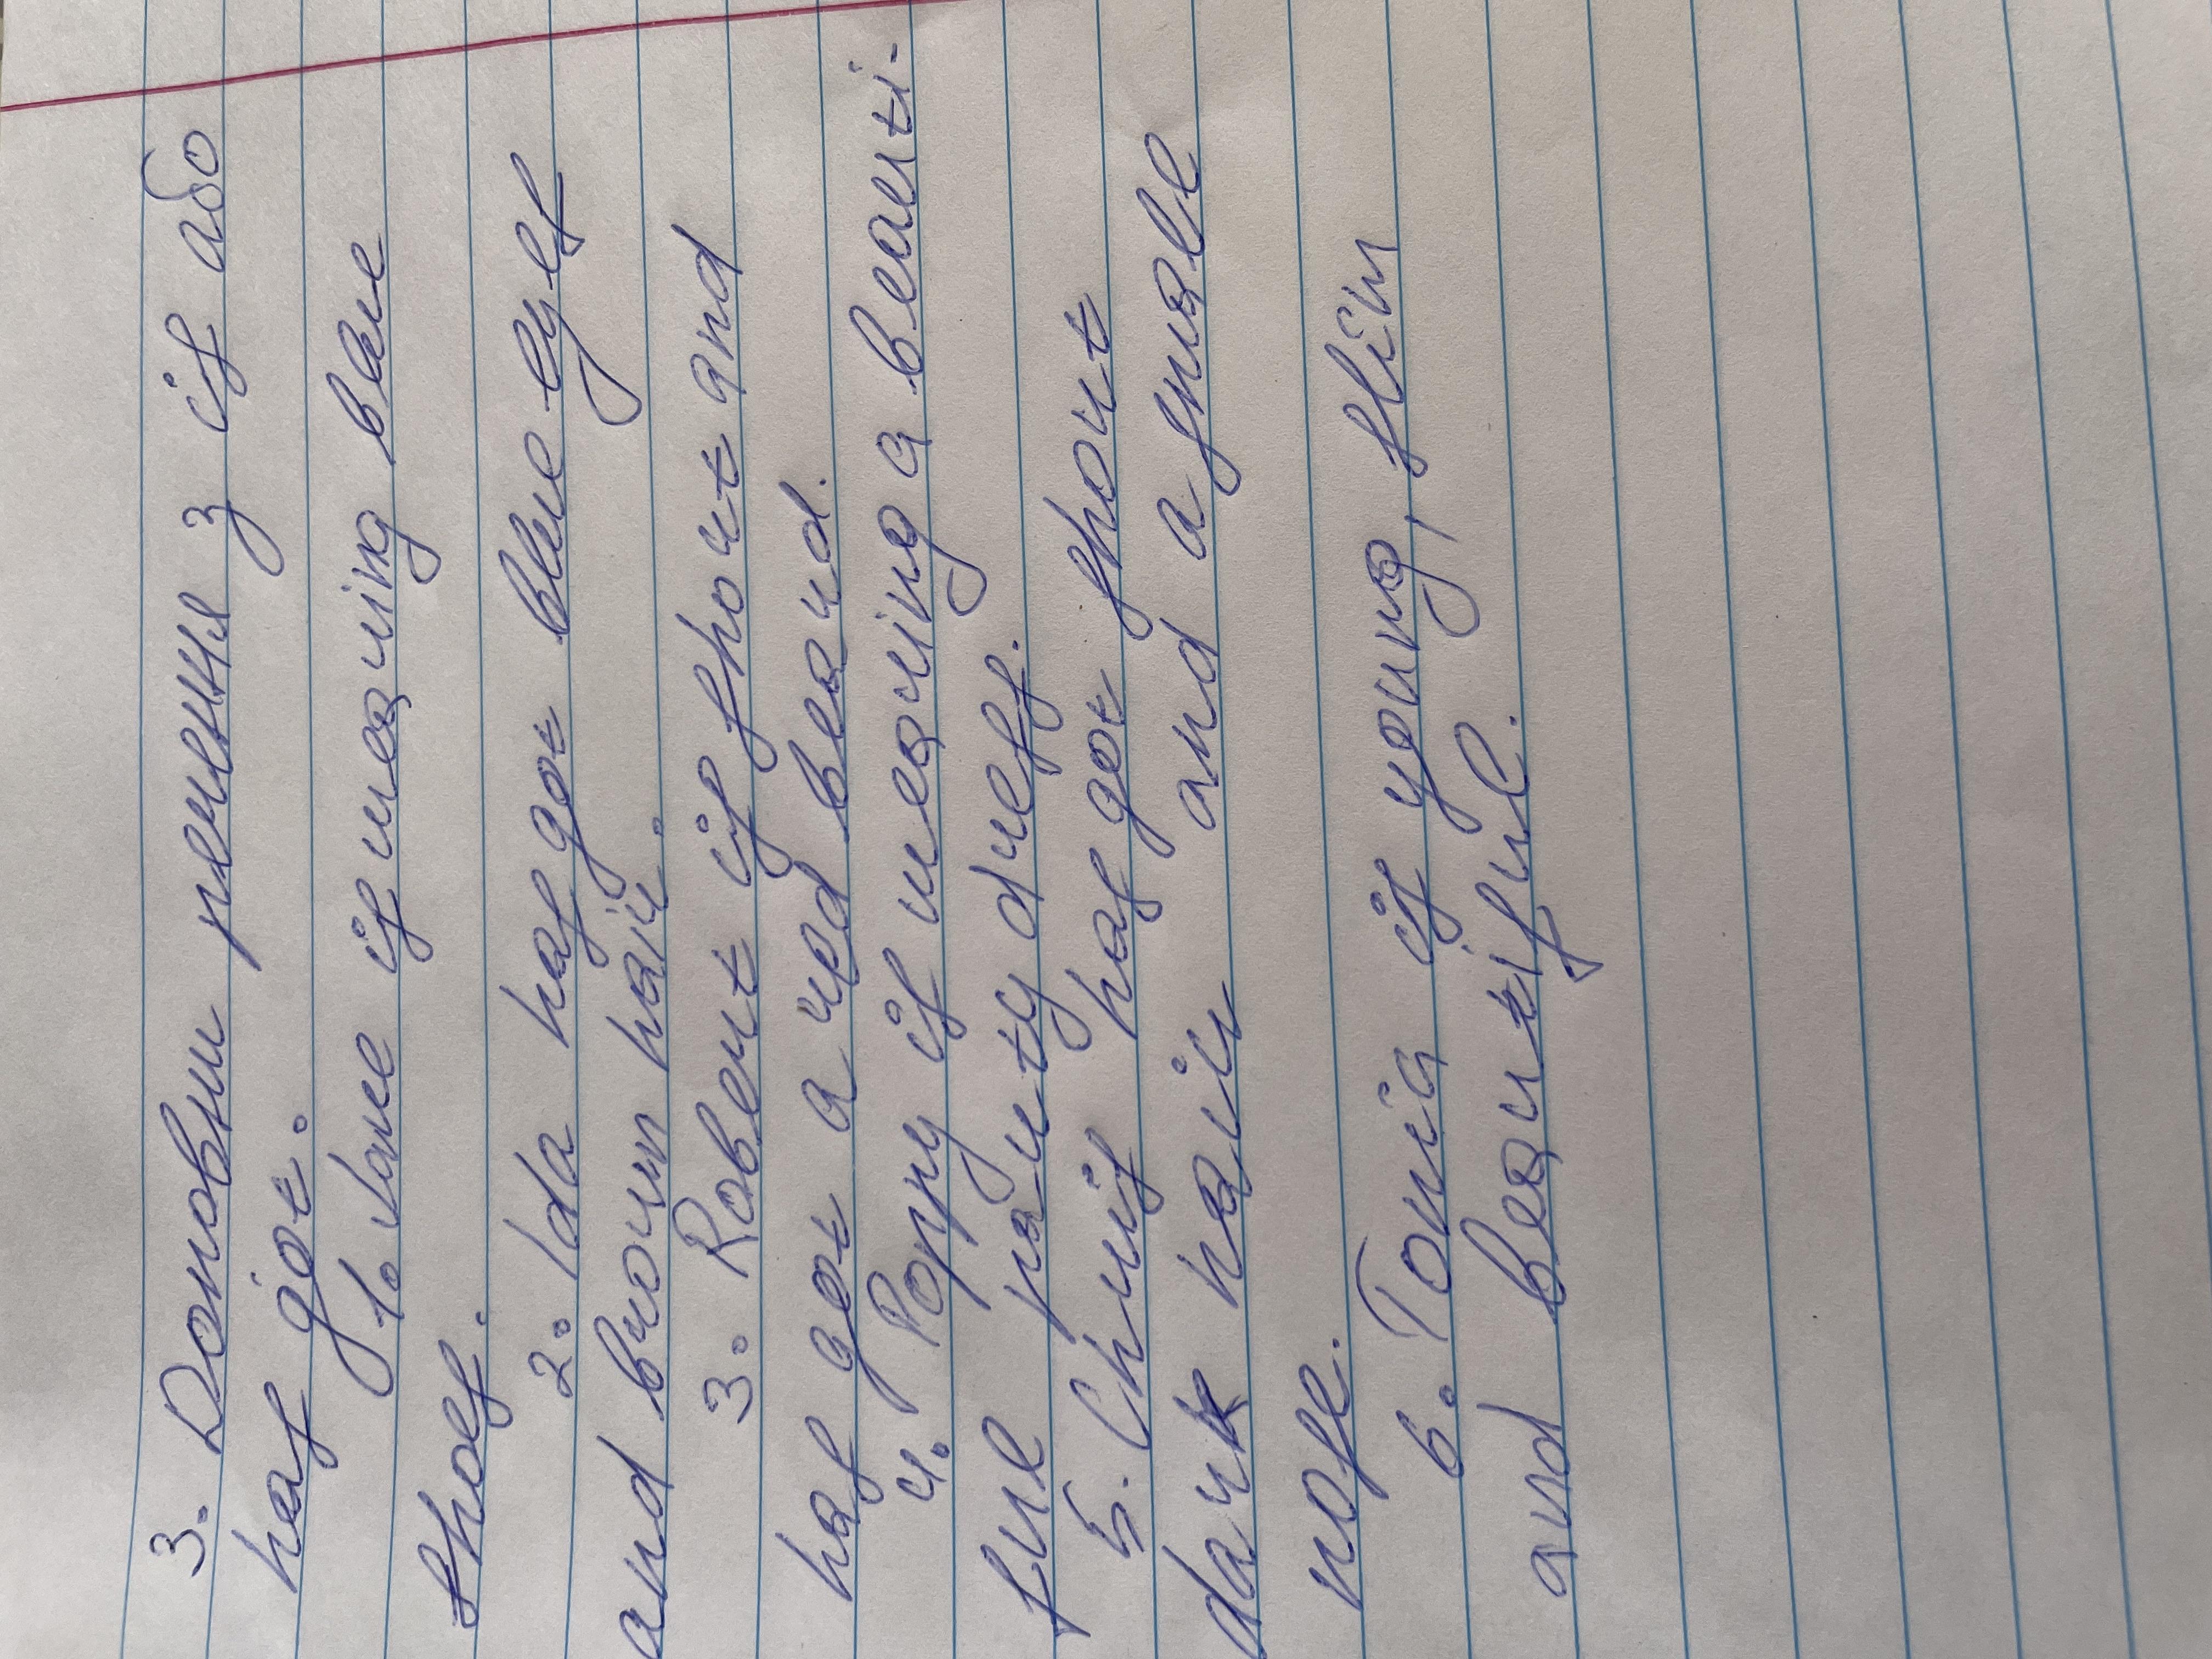 3. Доповни речення з is або
has got.
1. Jane is wearing blue
shoes.
2. Ida has got blue eyes
and brown hair.
3. Robert is short and
has got a red beard.
4. Poppy is wearing a beauti-
ful party dress.
5. Chris has got short
dark hair and a small
nose.
6. Tonia is young, slim
and beautiful.